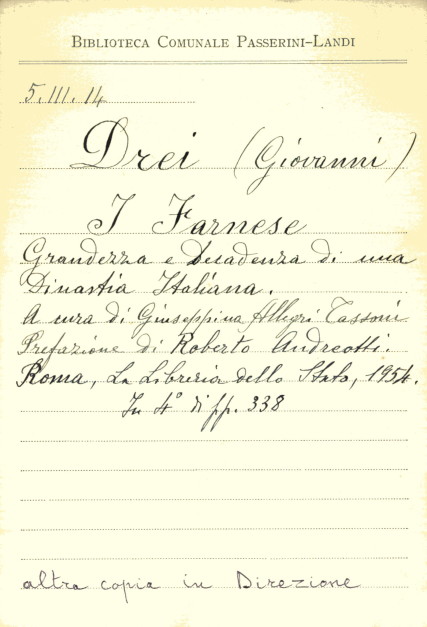 BIBLIOTECA COMUNALE PASSERINI-LANDI
5.III.14
Drei (Giovanni)
I Farnese
Grandezza e decadenza di una
Dinastia Italiana.
A cura di Giuseppina Allegri Tassoni
Prefazione di Roberto Andreotti.
Roma, La Libreria dello Stato, 1954.
In 4° di pp. 338
altra copia in Direzione